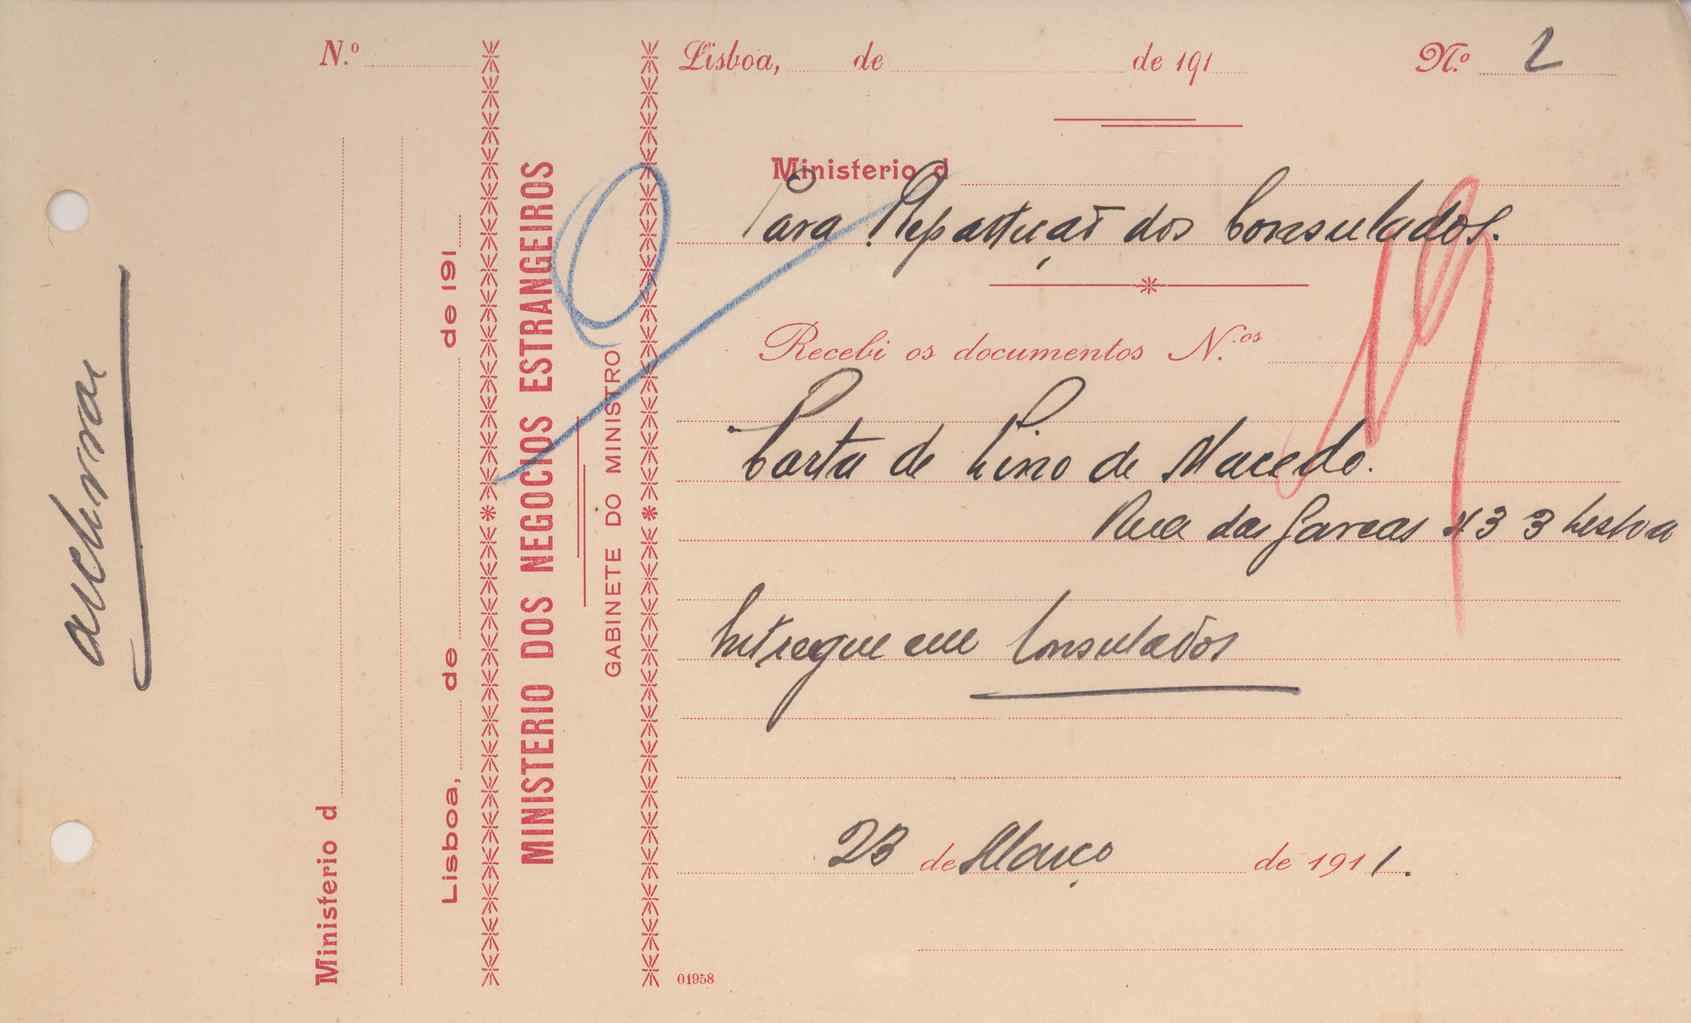 archivar
N.º
Ministerio d
Lisboa, de de 191
MINISTERIO DOS NEGOCIOS ESTRANGEIROS
GABINETE DO MINISTRO
Lisboa, de de 191 N.º 2
Ministerio d
Para Repartição dos Consulados.
Recebi os documentos N.os
Carta de Lino de Macedo.
Rua das Gaveas 3 Lisboa
Entregue em Consulados
23 de Março de 1911.
01958